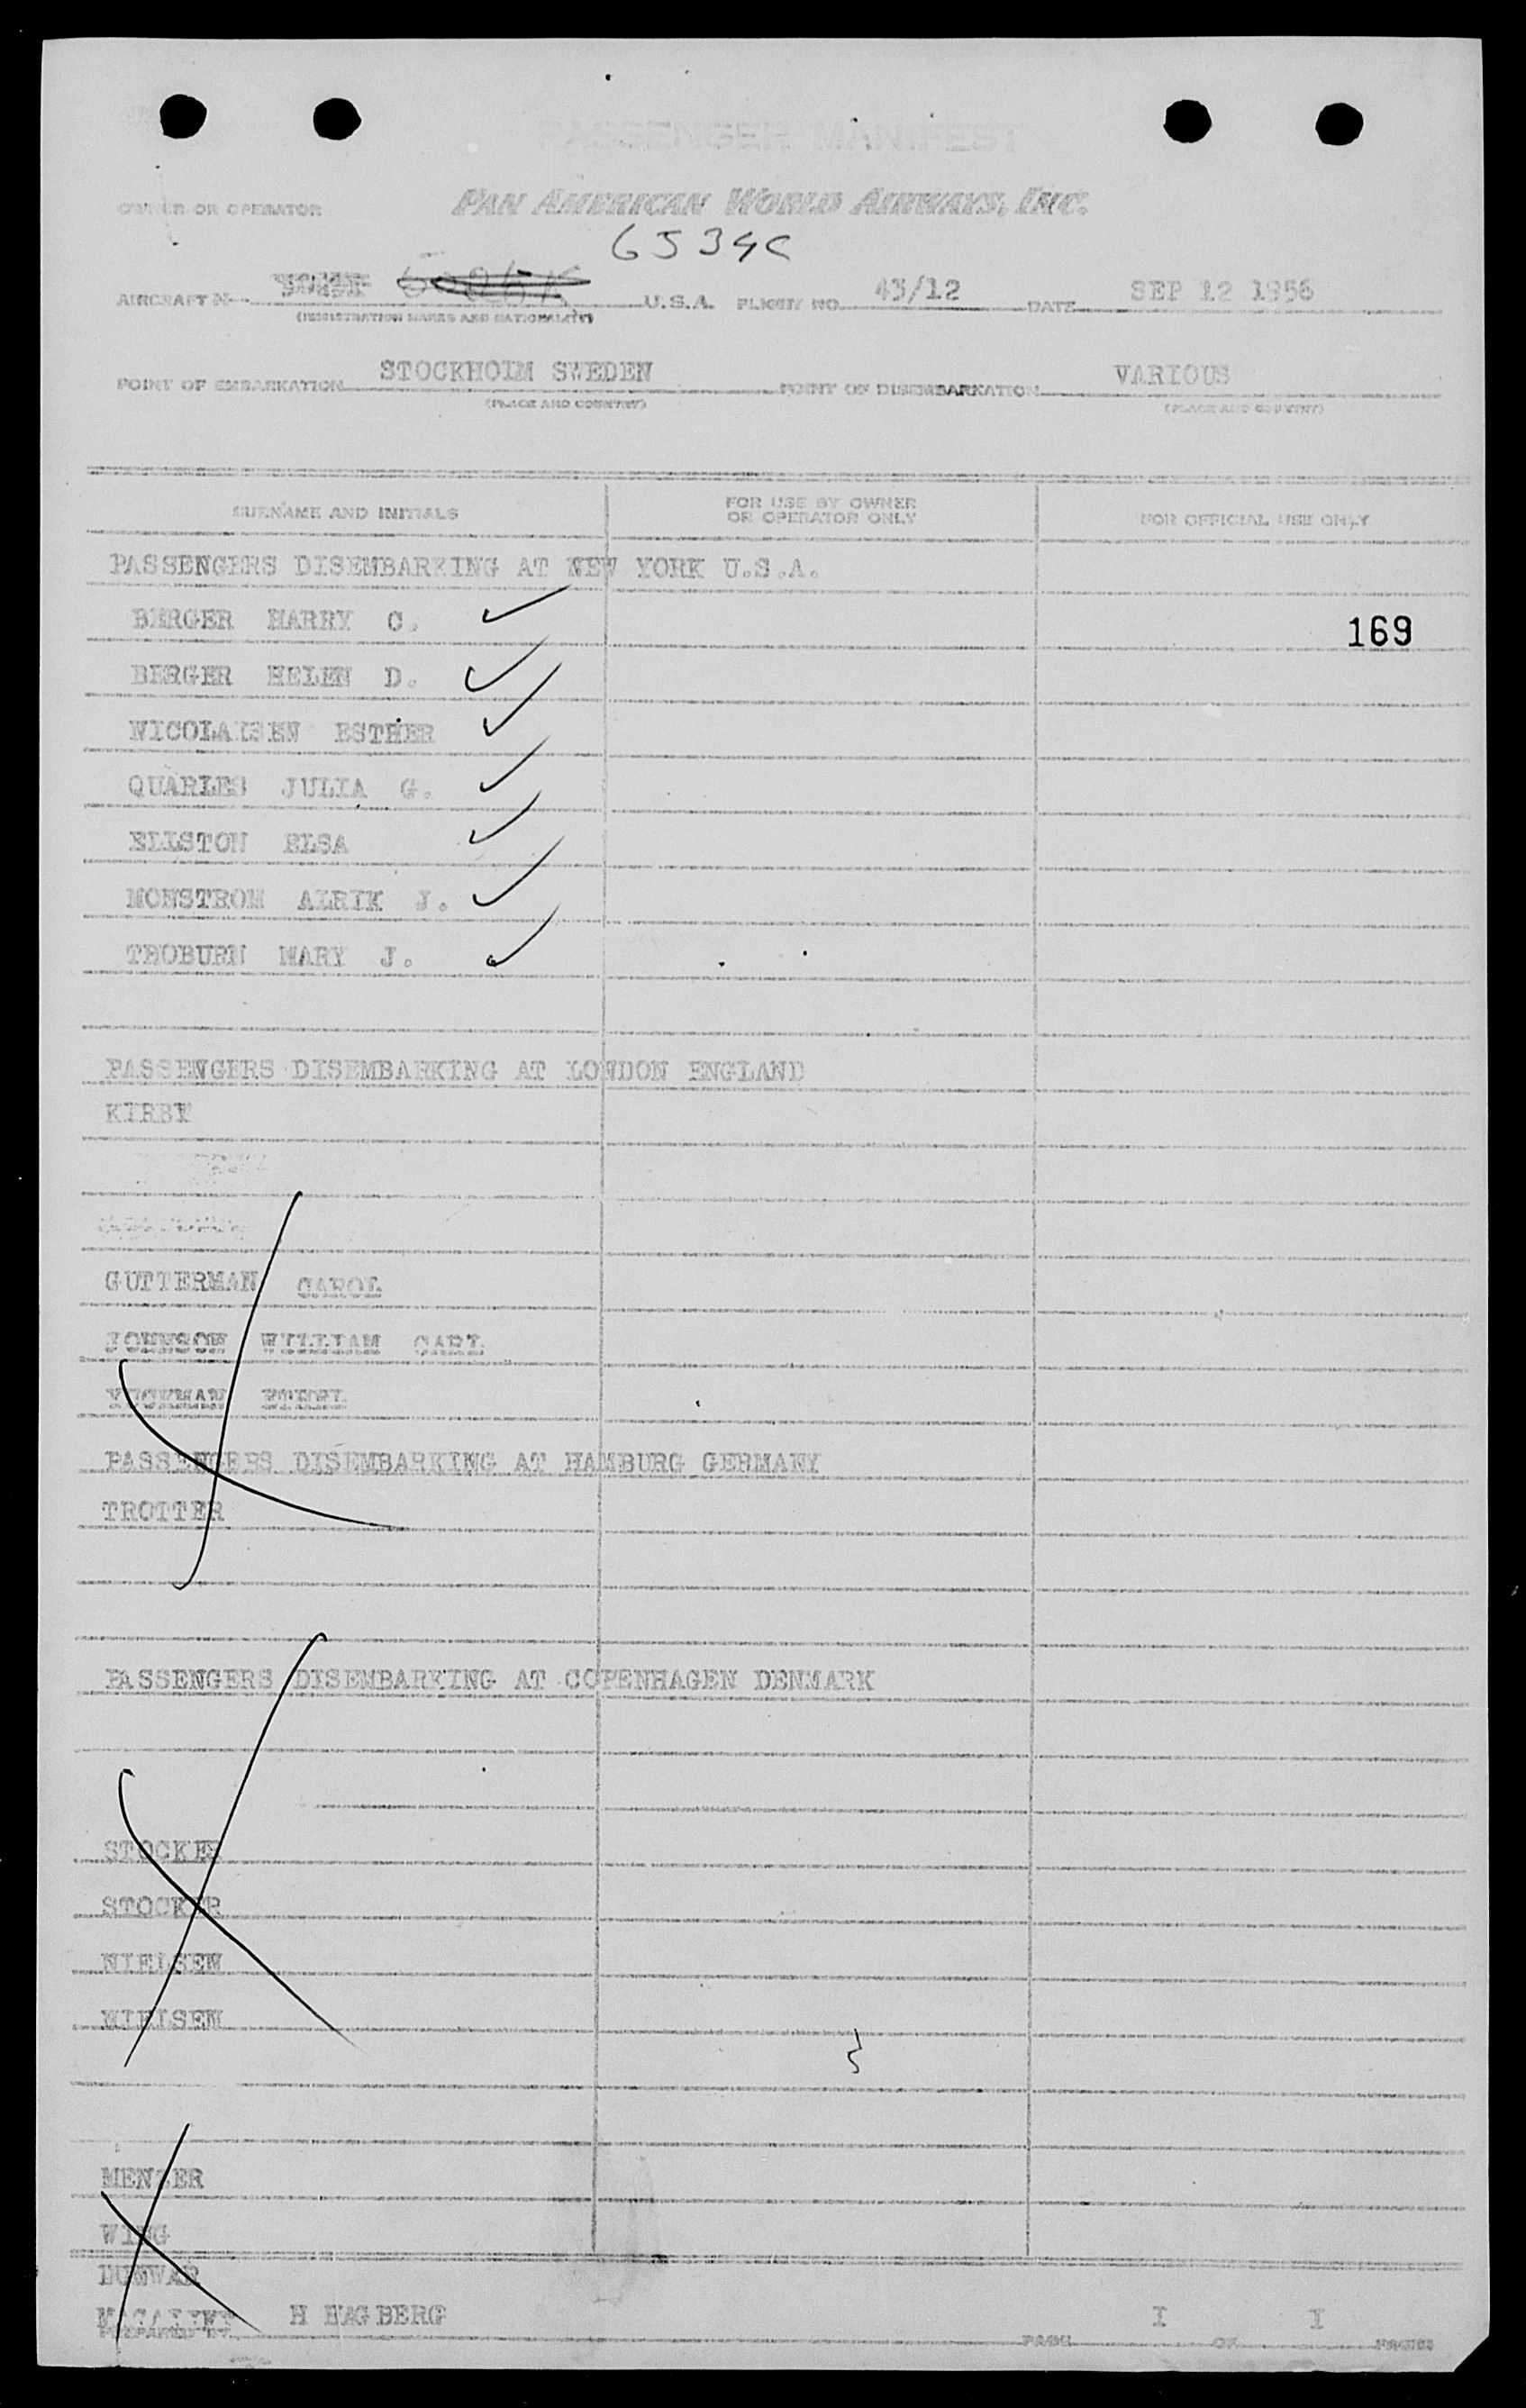 PASSENGER MANIFEST
OWNER OR OPERATOR PAN AMERICAN WORLD AIRWAYS, INC.
6534C
AIRCRAFT N- U.S.A. FLIGHT NO. 43/12 DATE SEP 12 1956
(REGISTRATION MARKS AND NATIONALITY)
POINT OF EMBARKATION STOCKHOLM SWEDEN POINT OF DISEMBARKATION VARIOUS
(PLACE AND COUNTRY) (PLACE AND COUNTRY)
SURNAME AND INITIALS FOR USE BY OWNER OR OPERATOR ONLY FOR OFFICIAL USE ONLY
PASSENGERS DISEMBARKING AT NEW YORK U.S.A.
BERGER HARRY C. 169
BERGER HELEN D.
NICOLAISEN ESTHER
QUARLES JULIA G.
ELLSTON ELSA
MONSTROM ALRIK J.
THOBURN MARY J.
PASSENGERS DISEMBARKING AT LONDON ENGLAND
KIRBY
GUTTERMAN CAROL
JOHNSON WILLIAM CARL
ETHEL
PASSENGERS DISEMBARKING AT HAMBURG GERMANY
TROTTER
PASSENGERS DISEMBARKING AT COPENHAGEN DENMARK
STOCKER
STOCKER
NIELSEN
NIELSEN
WING
PREPARED BY H HAGBERG PAGE I OF I PAGES